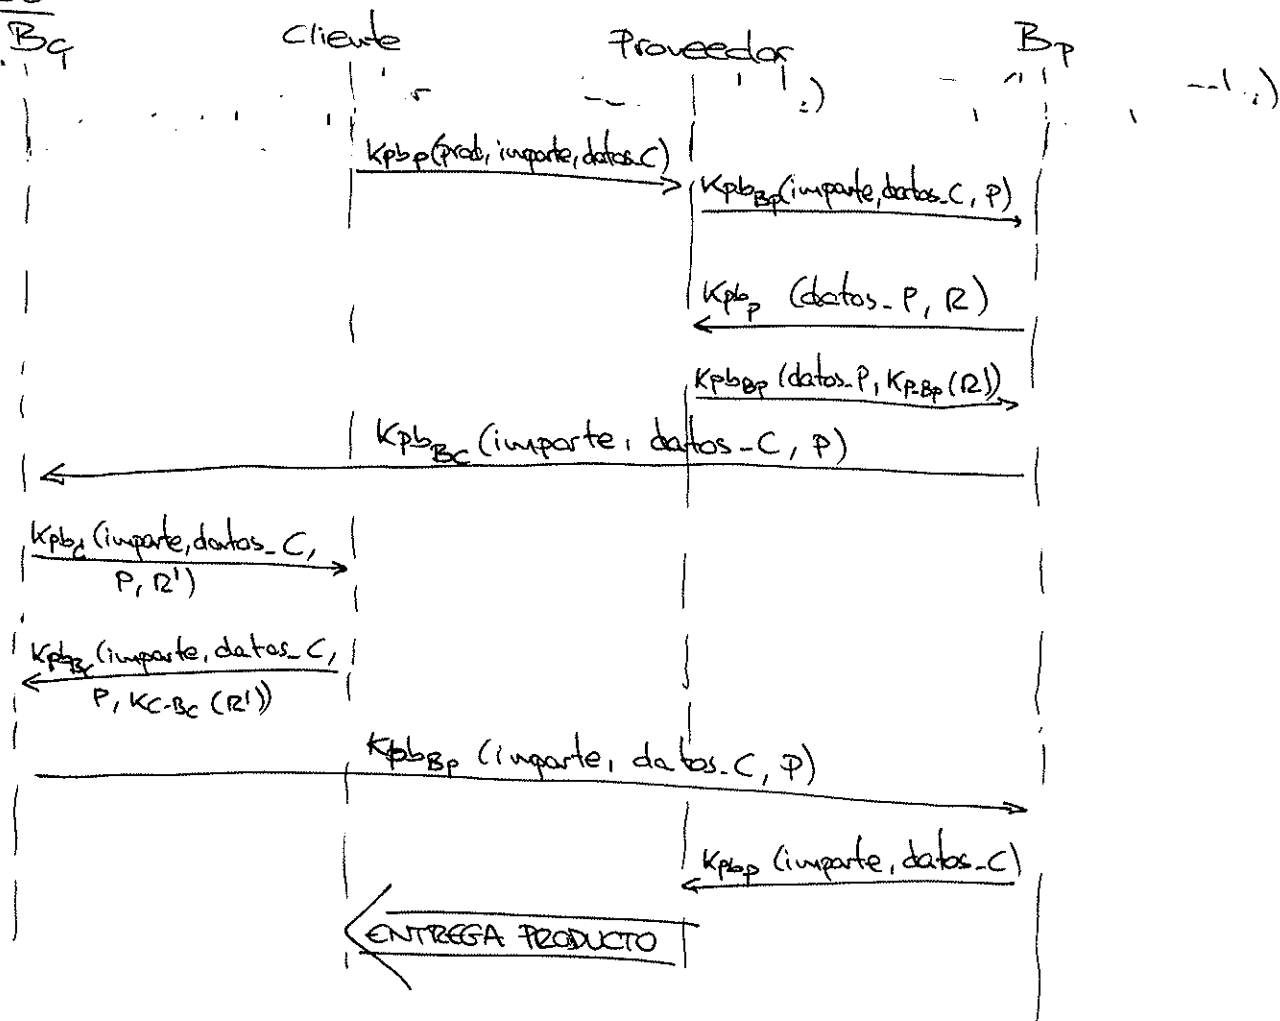 Bc Cliente Proveedor Bp
Kpbp(prod, importe, datos_C)
KpbBp(importe, datos_C, P)
Kpbp (datos_P, R)
KpbBp (datos_P, KP-Bp (R))
KpbBc (importe, datos_C, P)
Kpbc (importe, datos_C,
P, R')
KpbBc (importe, datos_C,
P, KC-Bc (R'))
KpbBp (importe, datos_C, P)
Kpbp (importe, datos_C)
ENTREGA PRODUCTO